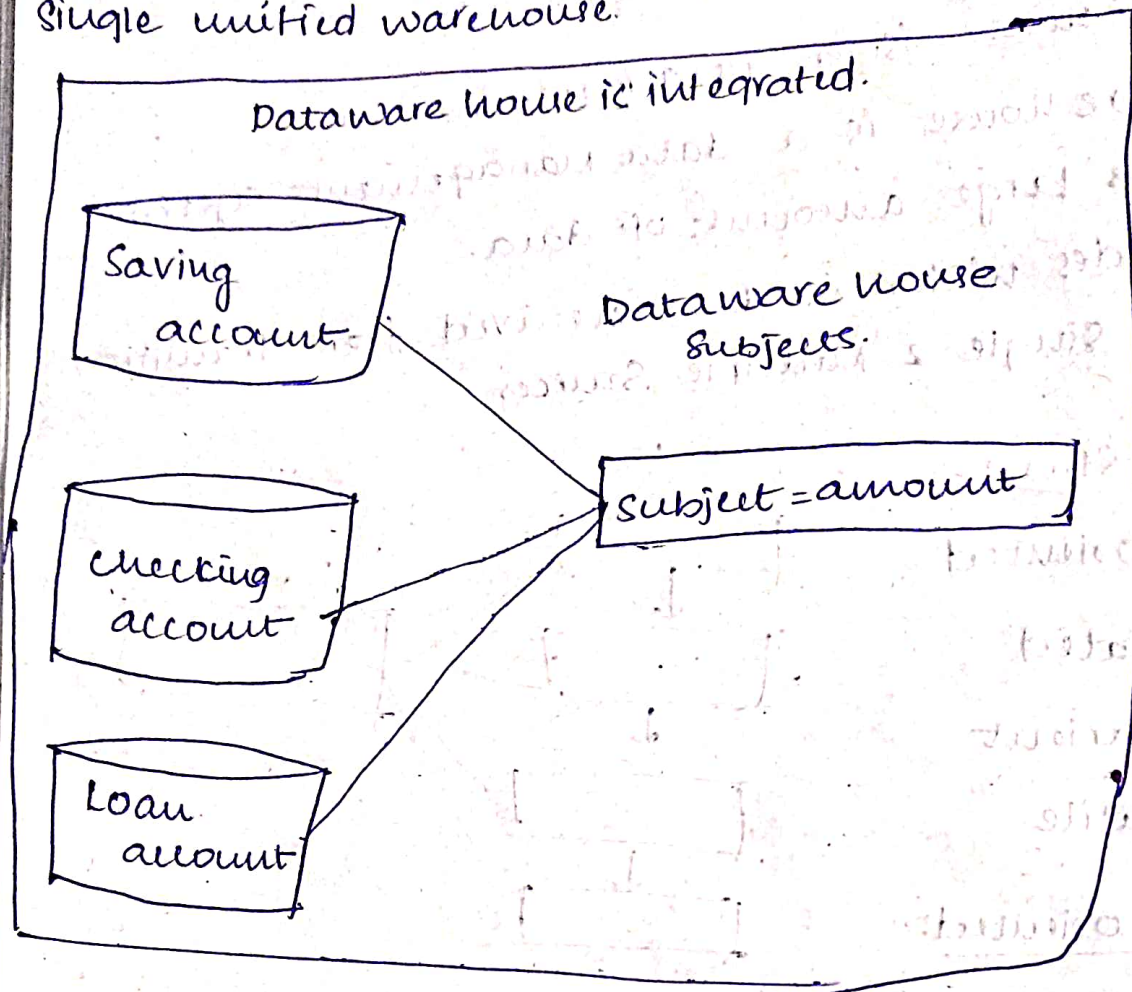 Single unified warehouse.
Dataware house is integrated.
Saving
account
Dataware house
Subjects.
subject = amount
checking
account
Loan
account